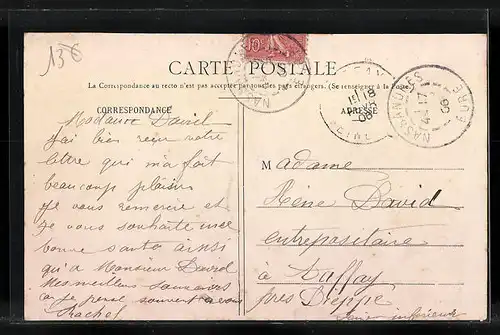 13€
CARTE POSTALE
La Correspondance au recto n'est pas acceptée par tous les pays étrangers. (Se renseigner à la Poste.)
CORRESPONDANCE
ADRESSE
Madame David
j'ai bien reçu votre
lettre qui m'a fait
beaucoup plaisir
je vous remercie et
je vous souhaite une
bonne santé ainsi
qu'à Monsieur David
Mes meilleurs
car je pense souvent à vous
Rachel
Madame
David
entrepositaire
à
près Dieppe
Seine inférieure
NASSANDRES
EURE